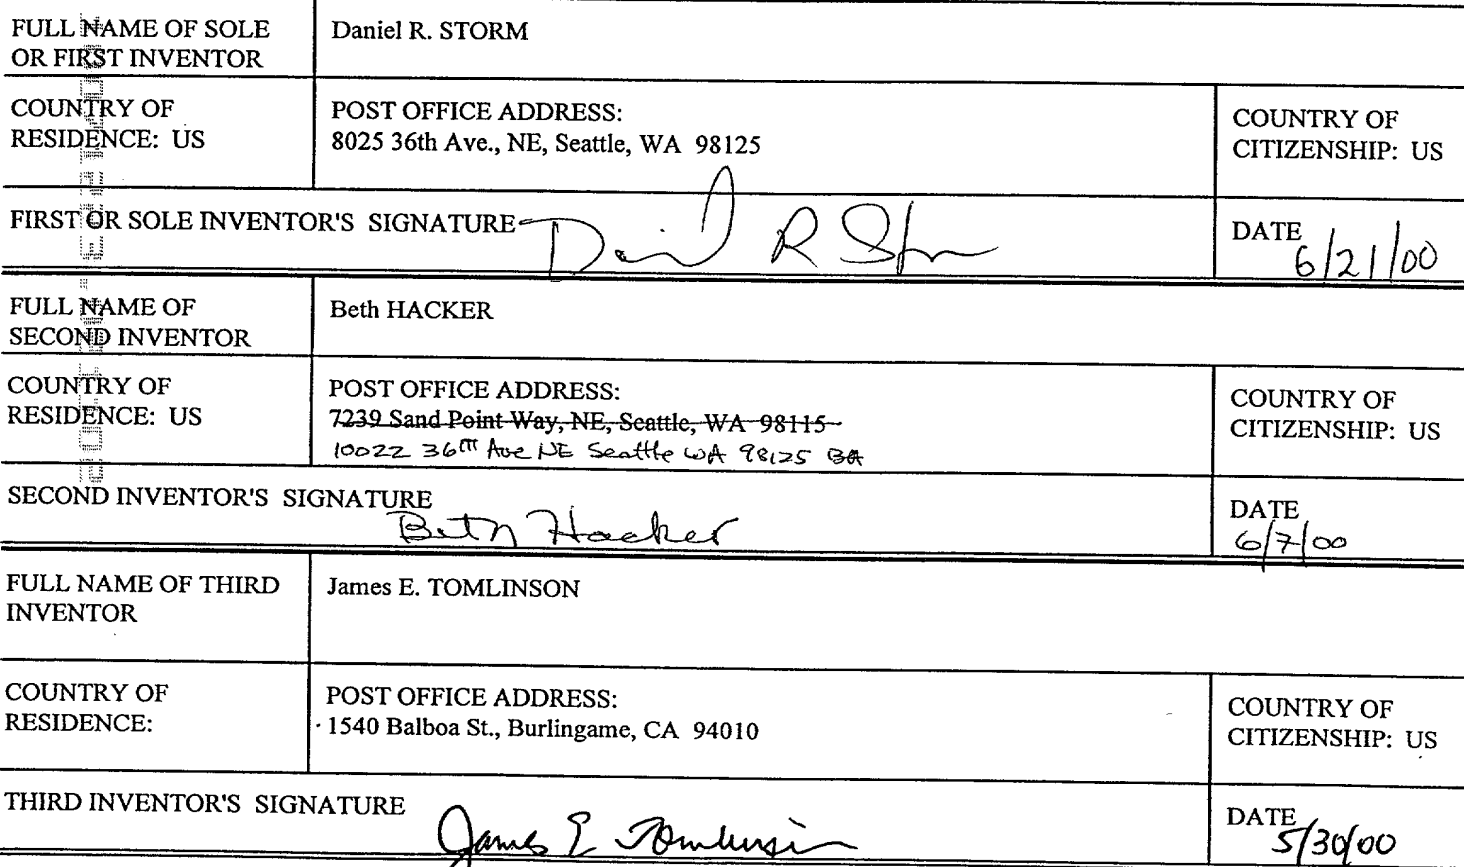 FULL NAME OF SOLE
OR FIRST INVENTOR
Daniel R. STORM
COUNTRY OF
RESIDENCE: US
POST OFFICE ADDRESS:
8025 36th Ave., NE, Seattle, WA 98125
COUNTRY OF
CITIZENSHIP: US
FIRST OR SOLE INVENTOR'S SIGNATURE
Daniel R Storm
DATE
6/21/00
FULL NAME OF
SECOND INVENTOR
Beth HACKER
COUNTRY OF
RESIDENCE: US
POST OFFICE ADDRESS:
7239 Sand Point Way, NE, Seattle, WA 98115
10022 36TH Ave NE Seattle WA 98125
COUNTRY OF
CITIZENSHIP: US
SECOND INVENTOR'S SIGNATURE
Beth Hacker
DATE
6/7/00
FULL NAME OF THIRD
INVENTOR
James E. TOMLINSON
COUNTRY OF
RESIDENCE:
POST OFFICE ADDRESS:
1540 Balboa St., Burlingame, CA 94010
COUNTRY OF
CITIZENSHIP: US
THIRD INVENTOR'S SIGNATURE
James E Tomlinson
DATE
5/30/00